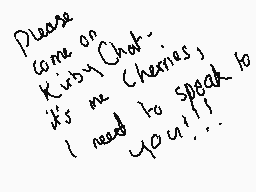 Please
come on
Kirby Chat.
it's me Cherries,
I need to speak to
you!!!...